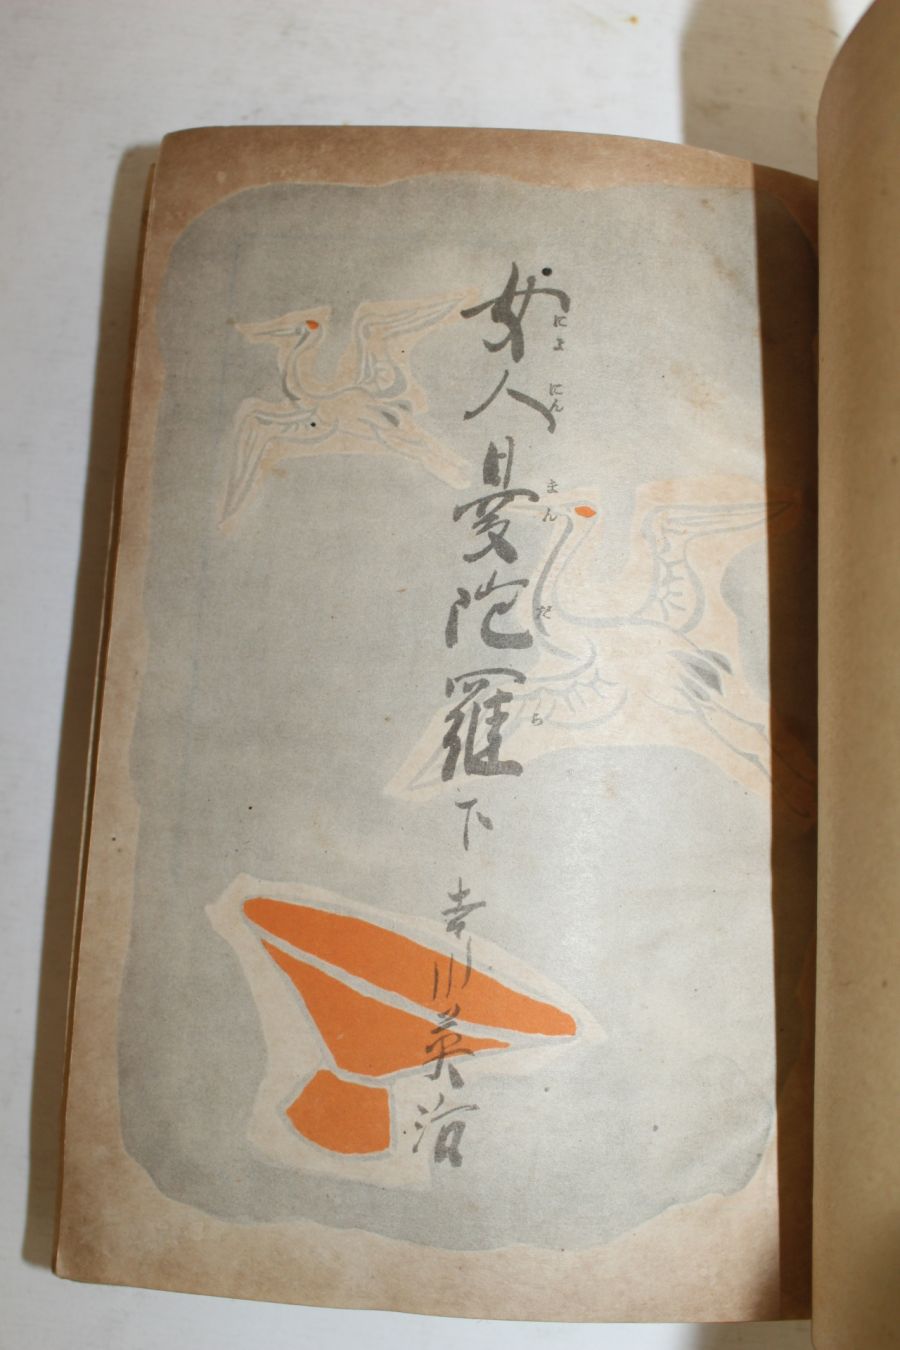 女人曼陀羅 下 吉川英治
にょ にん まん だ ら